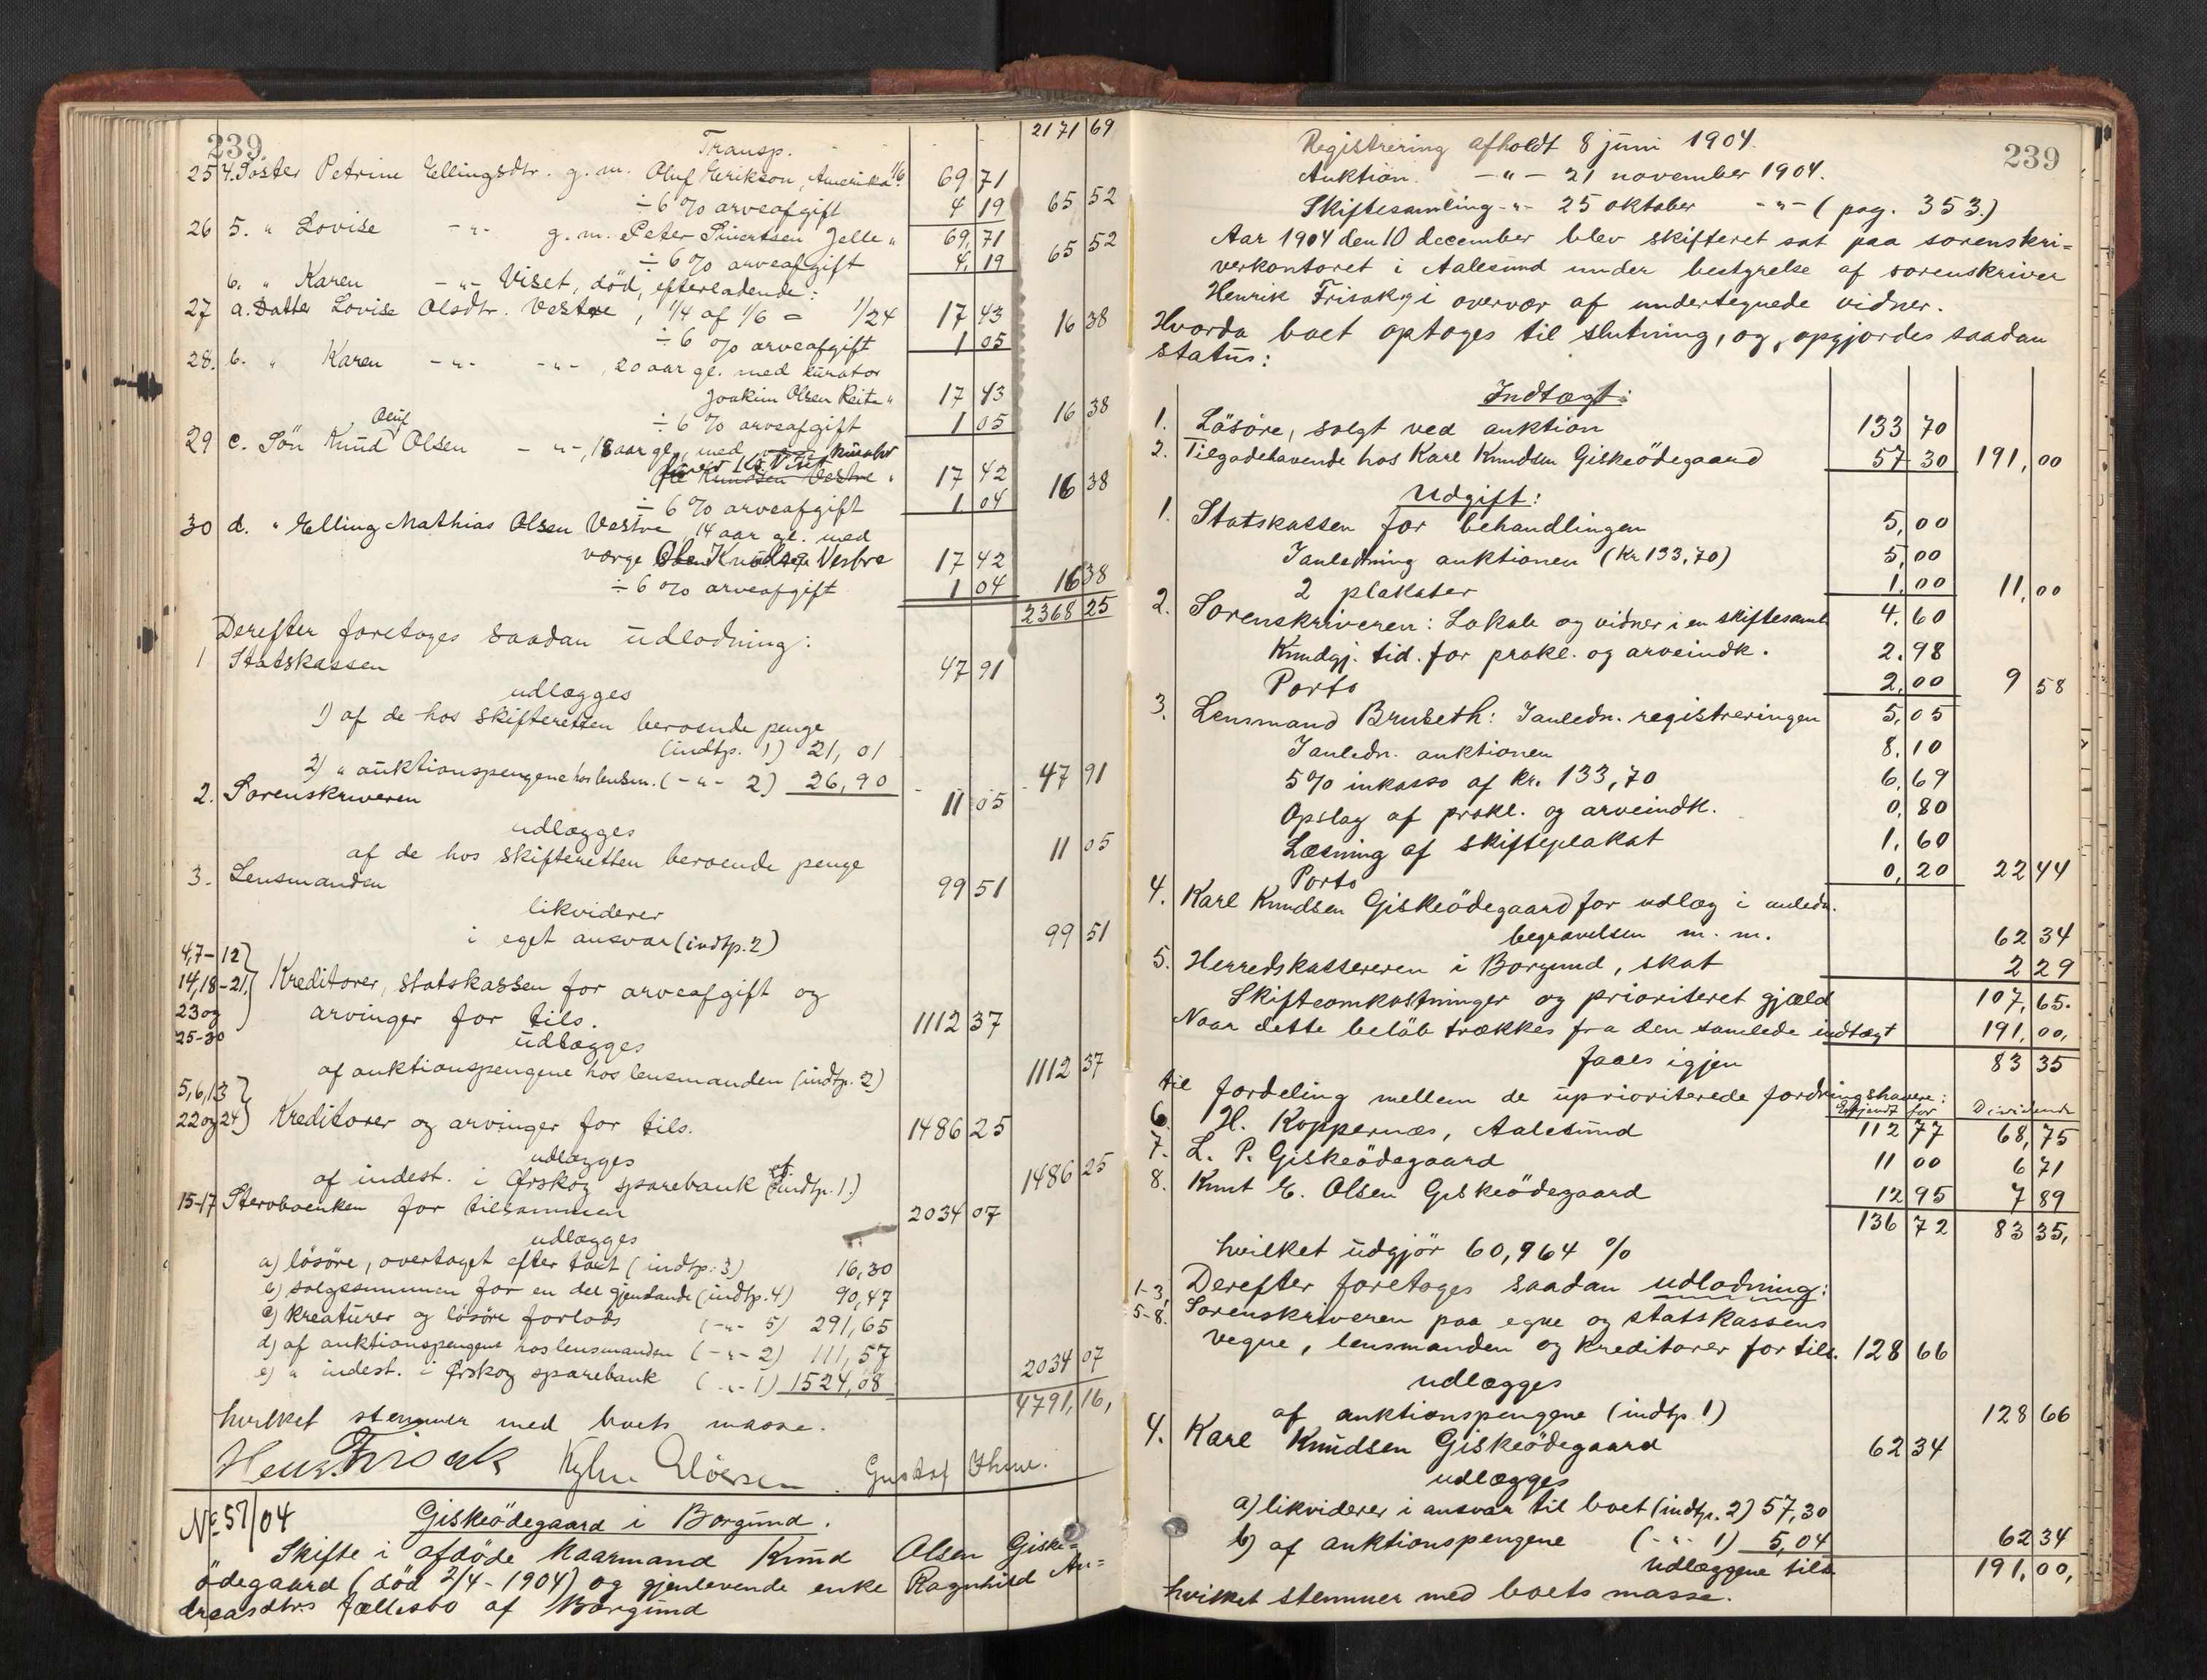 239
Transp. 2171 69
25 4. Söster Petrine Ellingsdtr. g. m. Oluf Erikson, Amerika 1/6 69 71
÷ 6 % arveafgift 4 19 65 52
26 5. " Lovise -"- g. m. Peter Sivertsen Gjelle " 69,71
÷ 6 % arveafgift 4,19 65 52
6. " Karen -"- Viset, död, efterladende:
27 a. Datter Lovise Olsdtr. Vestre, 1/4 af 1/6 = 1/24 17 43
÷ 6 % arveafgift 1 05 16 38
28. b. " Karen -"- -"-, 20 aar gl. med kurator
Joakim Olsen Reite " 17 43
÷ 6 % arveafgift 1 05 16 38
Oluf
29 c. Sön Knud Olsen -"-, 18 aar gl., med kurator
Knudsen Vestre " 17 42
÷ 6 % arveafgift 1 04 16 38
30 d. " Elling Mathias Olsen Vestre, 14 aar gl. med
værge Ole Knudsen Vestre 17 42
÷ 6 % arveafgift 1 04 16 38
2368 25
Derefter foretoges saadan udlodning:
1 Statskassen 47 91
udlægges
1) af de hos skifteretten beroende penge
(indtp. 1) 21,01
2) " auktionspengene hos lensm. (-"- 2) 26,90 47 91
2. Sorenskriveren 11 05
udlægges
af de hos skifteretten beroende penge 11 05
3. Lensmanden 99 51
likviderer
i eget ansvar (indtp. 2) 99 51
4,7-12
14,18-21, Kreditorer, statskassen for arveafgift og
23 og arvinger for tils. 1112 37
25-30 udlægges
af auktionspengene hos lensmanden (indtp. 2) 1112 37
5,6,13
22 og 24 Kreditorer og arvinger for tils. 1486 25
udlægges
af indest. i Ørskog sparebank (af indtp. 1.) 1486 25
15-17 Stervboenken for tilsammen 2034 07
udlægges
a) lösöre, overtaget efter taxt (indtp. 3) 16,30
b) salgssummen for en del gjenstande (indtp. 4) 90,47
c) kreaturer og lösöre forlods (-"- 5) 291,65
d) af auktionspengene hos lensmanden (-"- 2) 111,57
e) " indest. i Ørskog sparebank (-"- 1) 1524,08 2034 07
4791,16,
hvilket stemmer med boets masse.
Henr Frisak Gustaf
No 57/04 Giskeödegaard i Borgund.
Skifte i afdöde kaarmand Knud Olsen Giske=
ödegaard (död 2/4-1904) og gjenlevende enke Ragnhild An=
dreasdtrs fællesbo af Borgund
239
Registrering afholdt 8 juni 1904.
Auktion -"- 21 november 1904.
Skiftesamling -"- 25 oktober -"- (pag. 353.)
Aar 1904 den 10 december blev skifteret sat paa sorenskri=
verkontoret i Aalesund under bestyrelse af sorenskriver
Henrik Frisak, i overvær af undertegnede vidner.
Hvorda boet optoges til slutning, og opgjordes saadan
status:
Indtægt:
1. Lösöre, solgt ved auktion 133 70
2. Tilgodehavende hos Karl Knudsen Giskeödegaard 57 30 191,00
Udgift:
1. Statskassen for behandlingen 5,00
I anledning auktionen (Kr. 133,70) 5,00
2 plakater 1,00 11,00
2. Sorenskriveren: Lokale og vidner i en skiftesaml 4,60
Kundgj. tid. for prokl. og arveindk. 2,98
Porto 2,00 9 58
3. Lensmand Bruseth: I anledn. registreringen 5,05
I anledn. auktionen 8,10
5 % inkasso af kr. 133,70 6,69
Opslag af prokl. og arveindk. 0,80
Læsning af skifteplakat 1,60
Porto 0,20 22 44
4. Karl Knudsen Giskeödegaard for udlæg i anledn.
begravelsen m. m. 62 34
5. Herredskassereren i Borgund, skat 2 29
Skifteomkostninger og prioriteret gjæld 107,65.
Naar dette belöb trækkes fra den samlede indtægt 191,00,
faaes igjen 83 35
til fordeling mellem de uprioriterede fordringshavere:
Udgjændt for Dividende
6. H. Koppernæs, Aalesund 112 77 68,75
7. L. P. Giskeödegaard 11 00 6 71
8. Knut E. Olsen Giskeödegaard 12 95 7 89
136 72 83 35,
hvilket udgjör 60,964 %
Derefter foretoges saadan udlodning:
1-3, 5-8. Sorenskriveren paa egne og statskassens
vegne, lensmanden og kreditorer for tils. 128 66
udlægges
af auktionspengene (indtp. 1) 128 66
4. Karl Knudsen Giskeödegaard 62 34
udlægges
a) likviderer i ansvar til boet (indtp. 2) 57,30
b) af auktionspengene (-"- 1) 5,04 62 34
udlæggene tils. 191,00,
hvilket stemmer med boets masse.